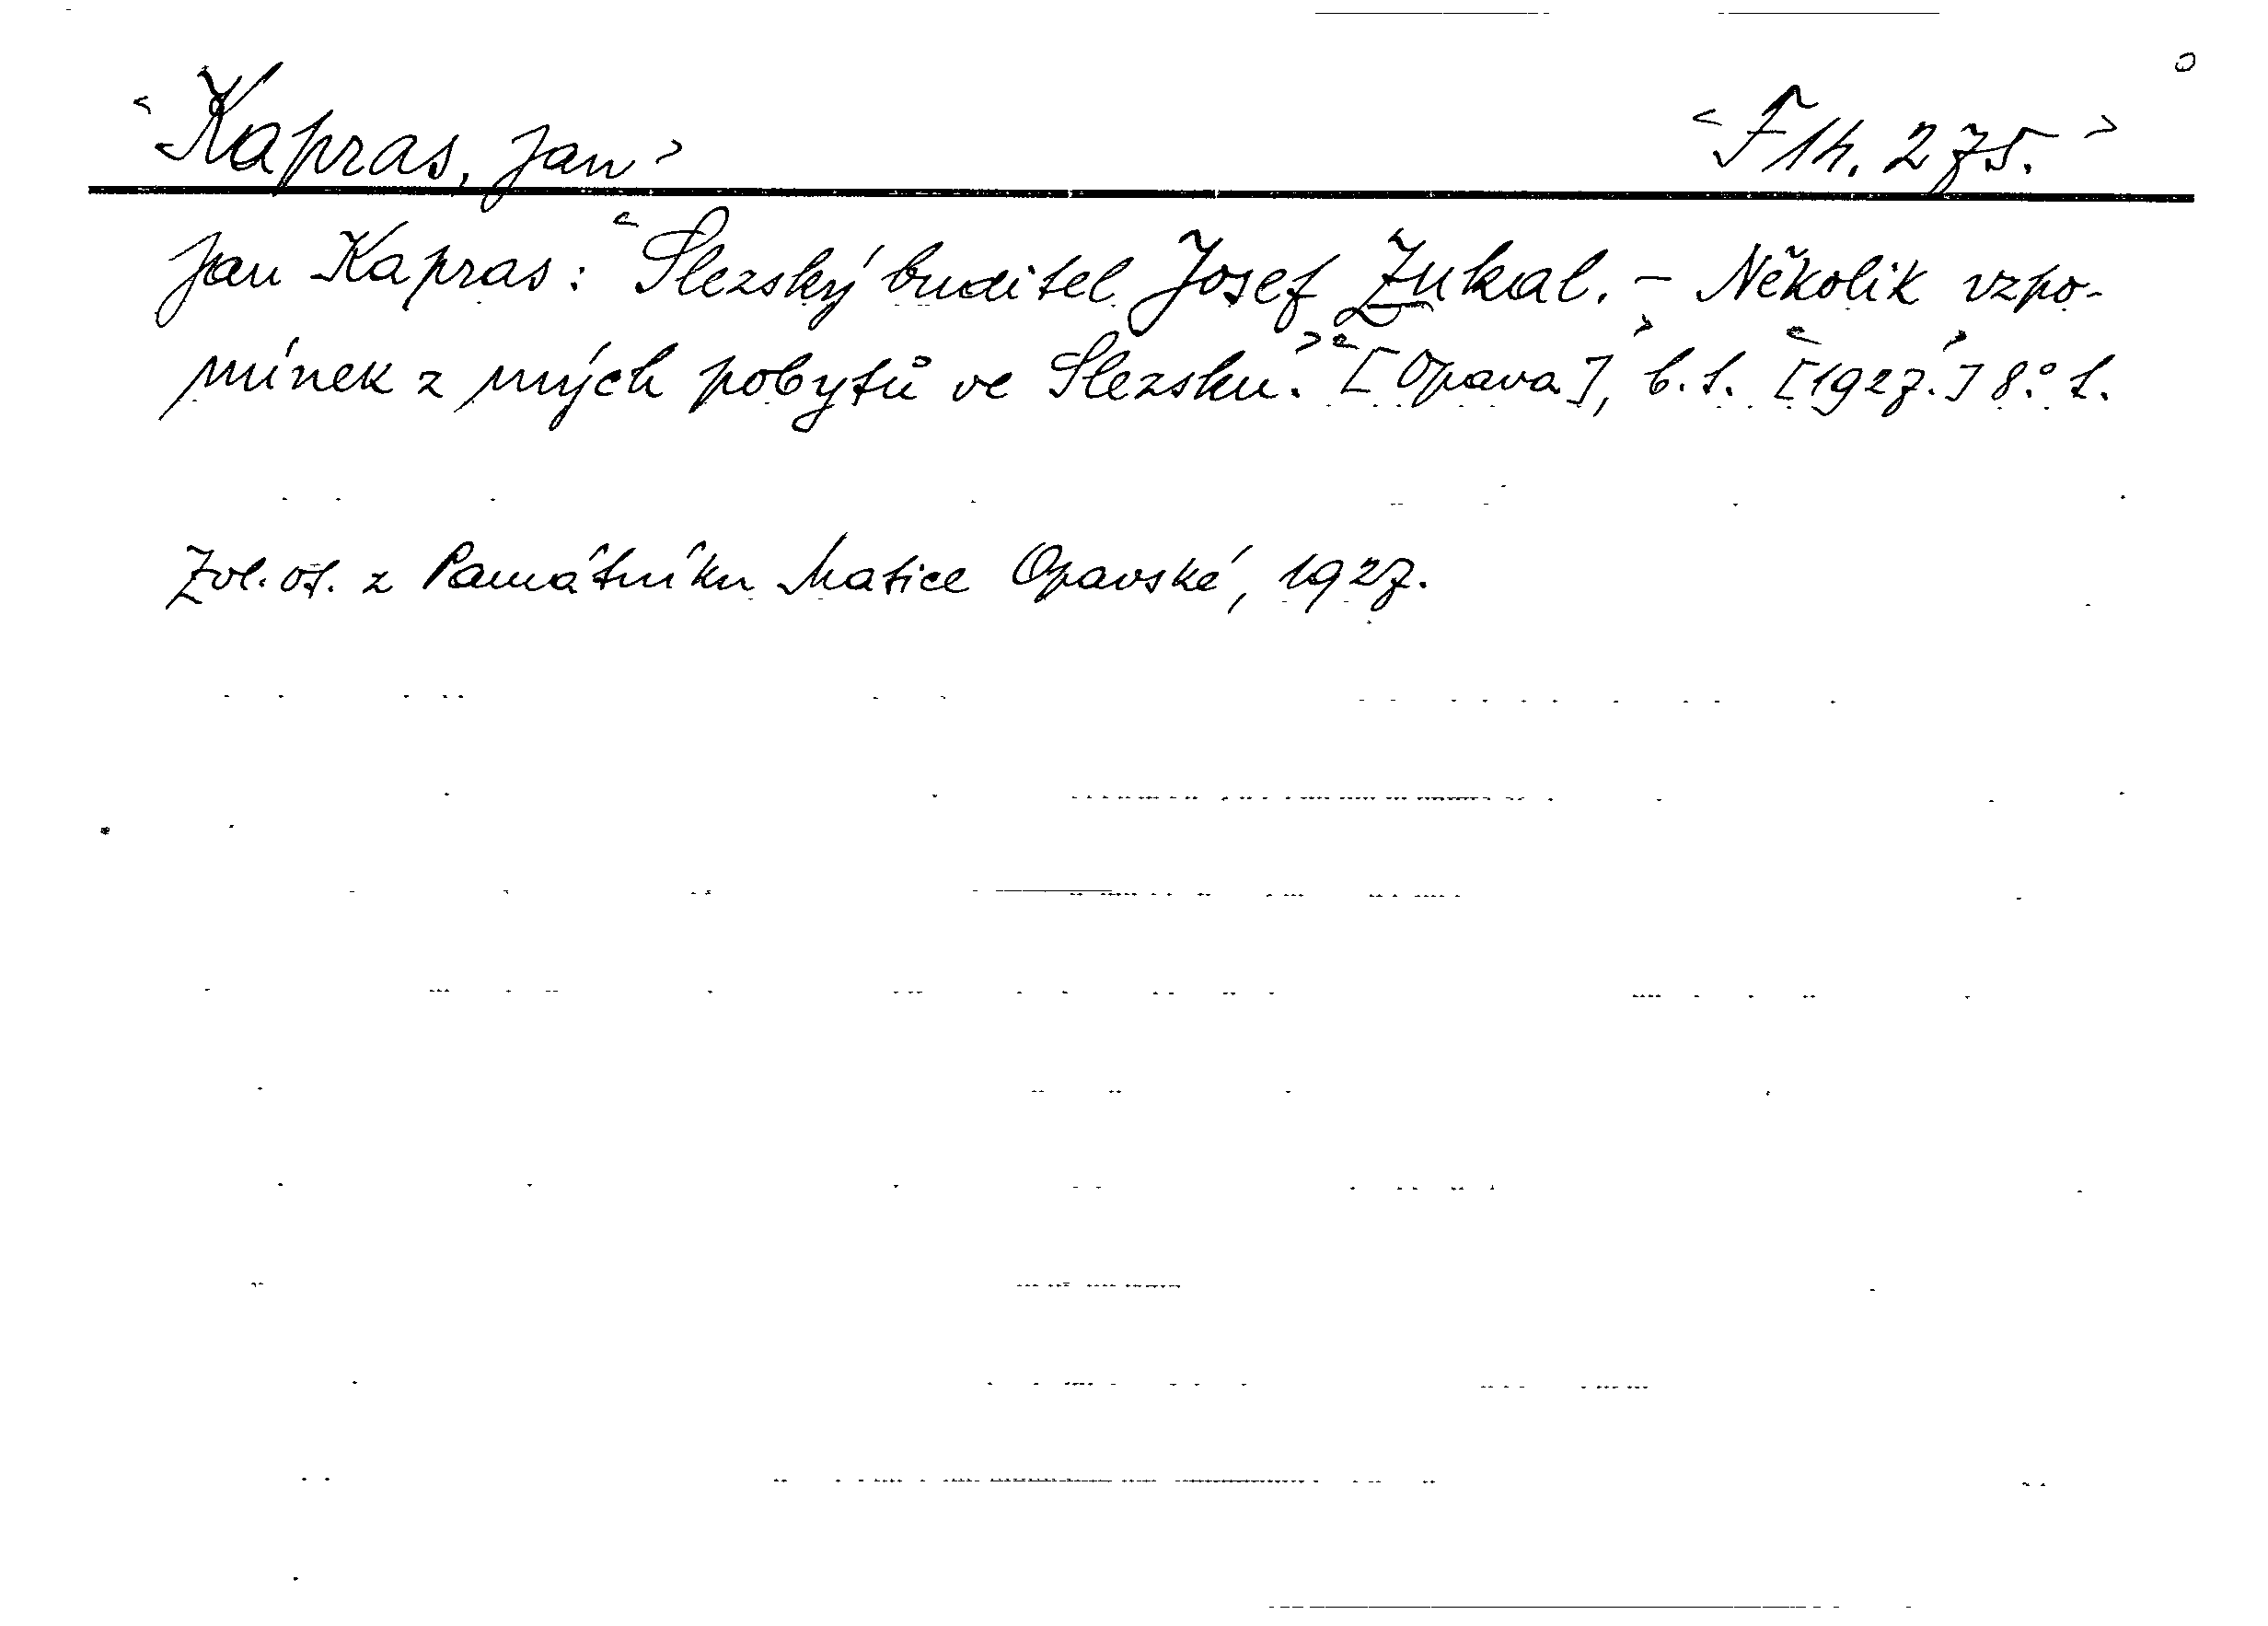 Kapras, Jan F 1h. 275.
Jan Kapras: Slezský buditel Josef Zukal. - Několik vzpo-
mínek z mých pobytů ve Slezsku. [Opava], b.t. [1927.] 8.° 1.
Zvl. ot. z Památníku Matice Opavské, 1927.